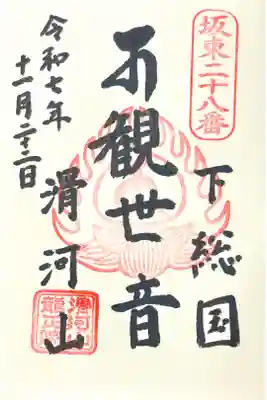 坂東二十八番
下総国
聖観世音
滑河山
令和七年
十一月二十二日